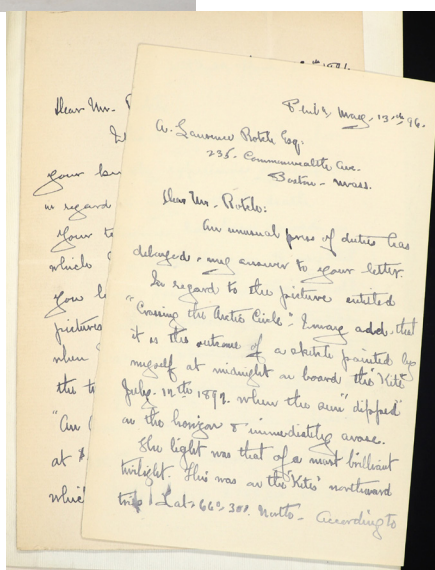 Dear Mr.
your
in regard
your
which
you
pictures
when
the
"An
at
which
Phila, May. 13th, 96.
A. Lawrence Rotch Esq.
235- Commonwealth Ave.
Boston- Mass.
Dear Mr. Rotch:
An unusual press of duties has
delayed my answer to your letter.
In regard to the picture entitled
"Crossing the Arctic Circle", I may add, that
it is the outcome of a sketch painted by
myself at midnight on board the "Kite"
July. 12th 1892. when the sun "dipped"
on the horizon & immediately arose.
The light was that of a most brilliant
twilight. This was on the "Kites" northward
trip Lat. 66°. 30'. North. According to